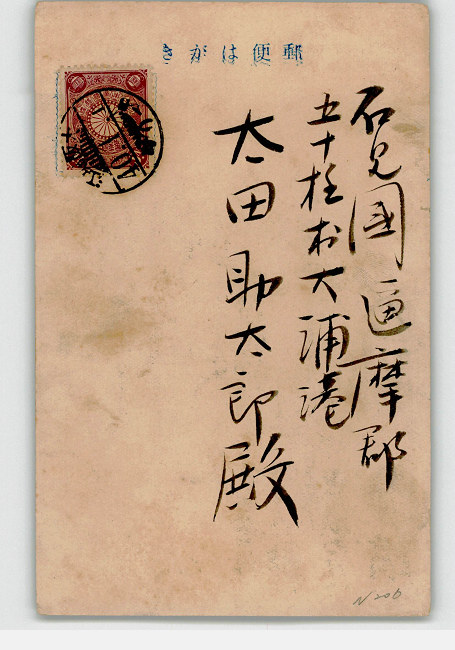 郵便はがき
石見國邇摩郡
五十猛村大浦港
太田助太郎殿
N 206